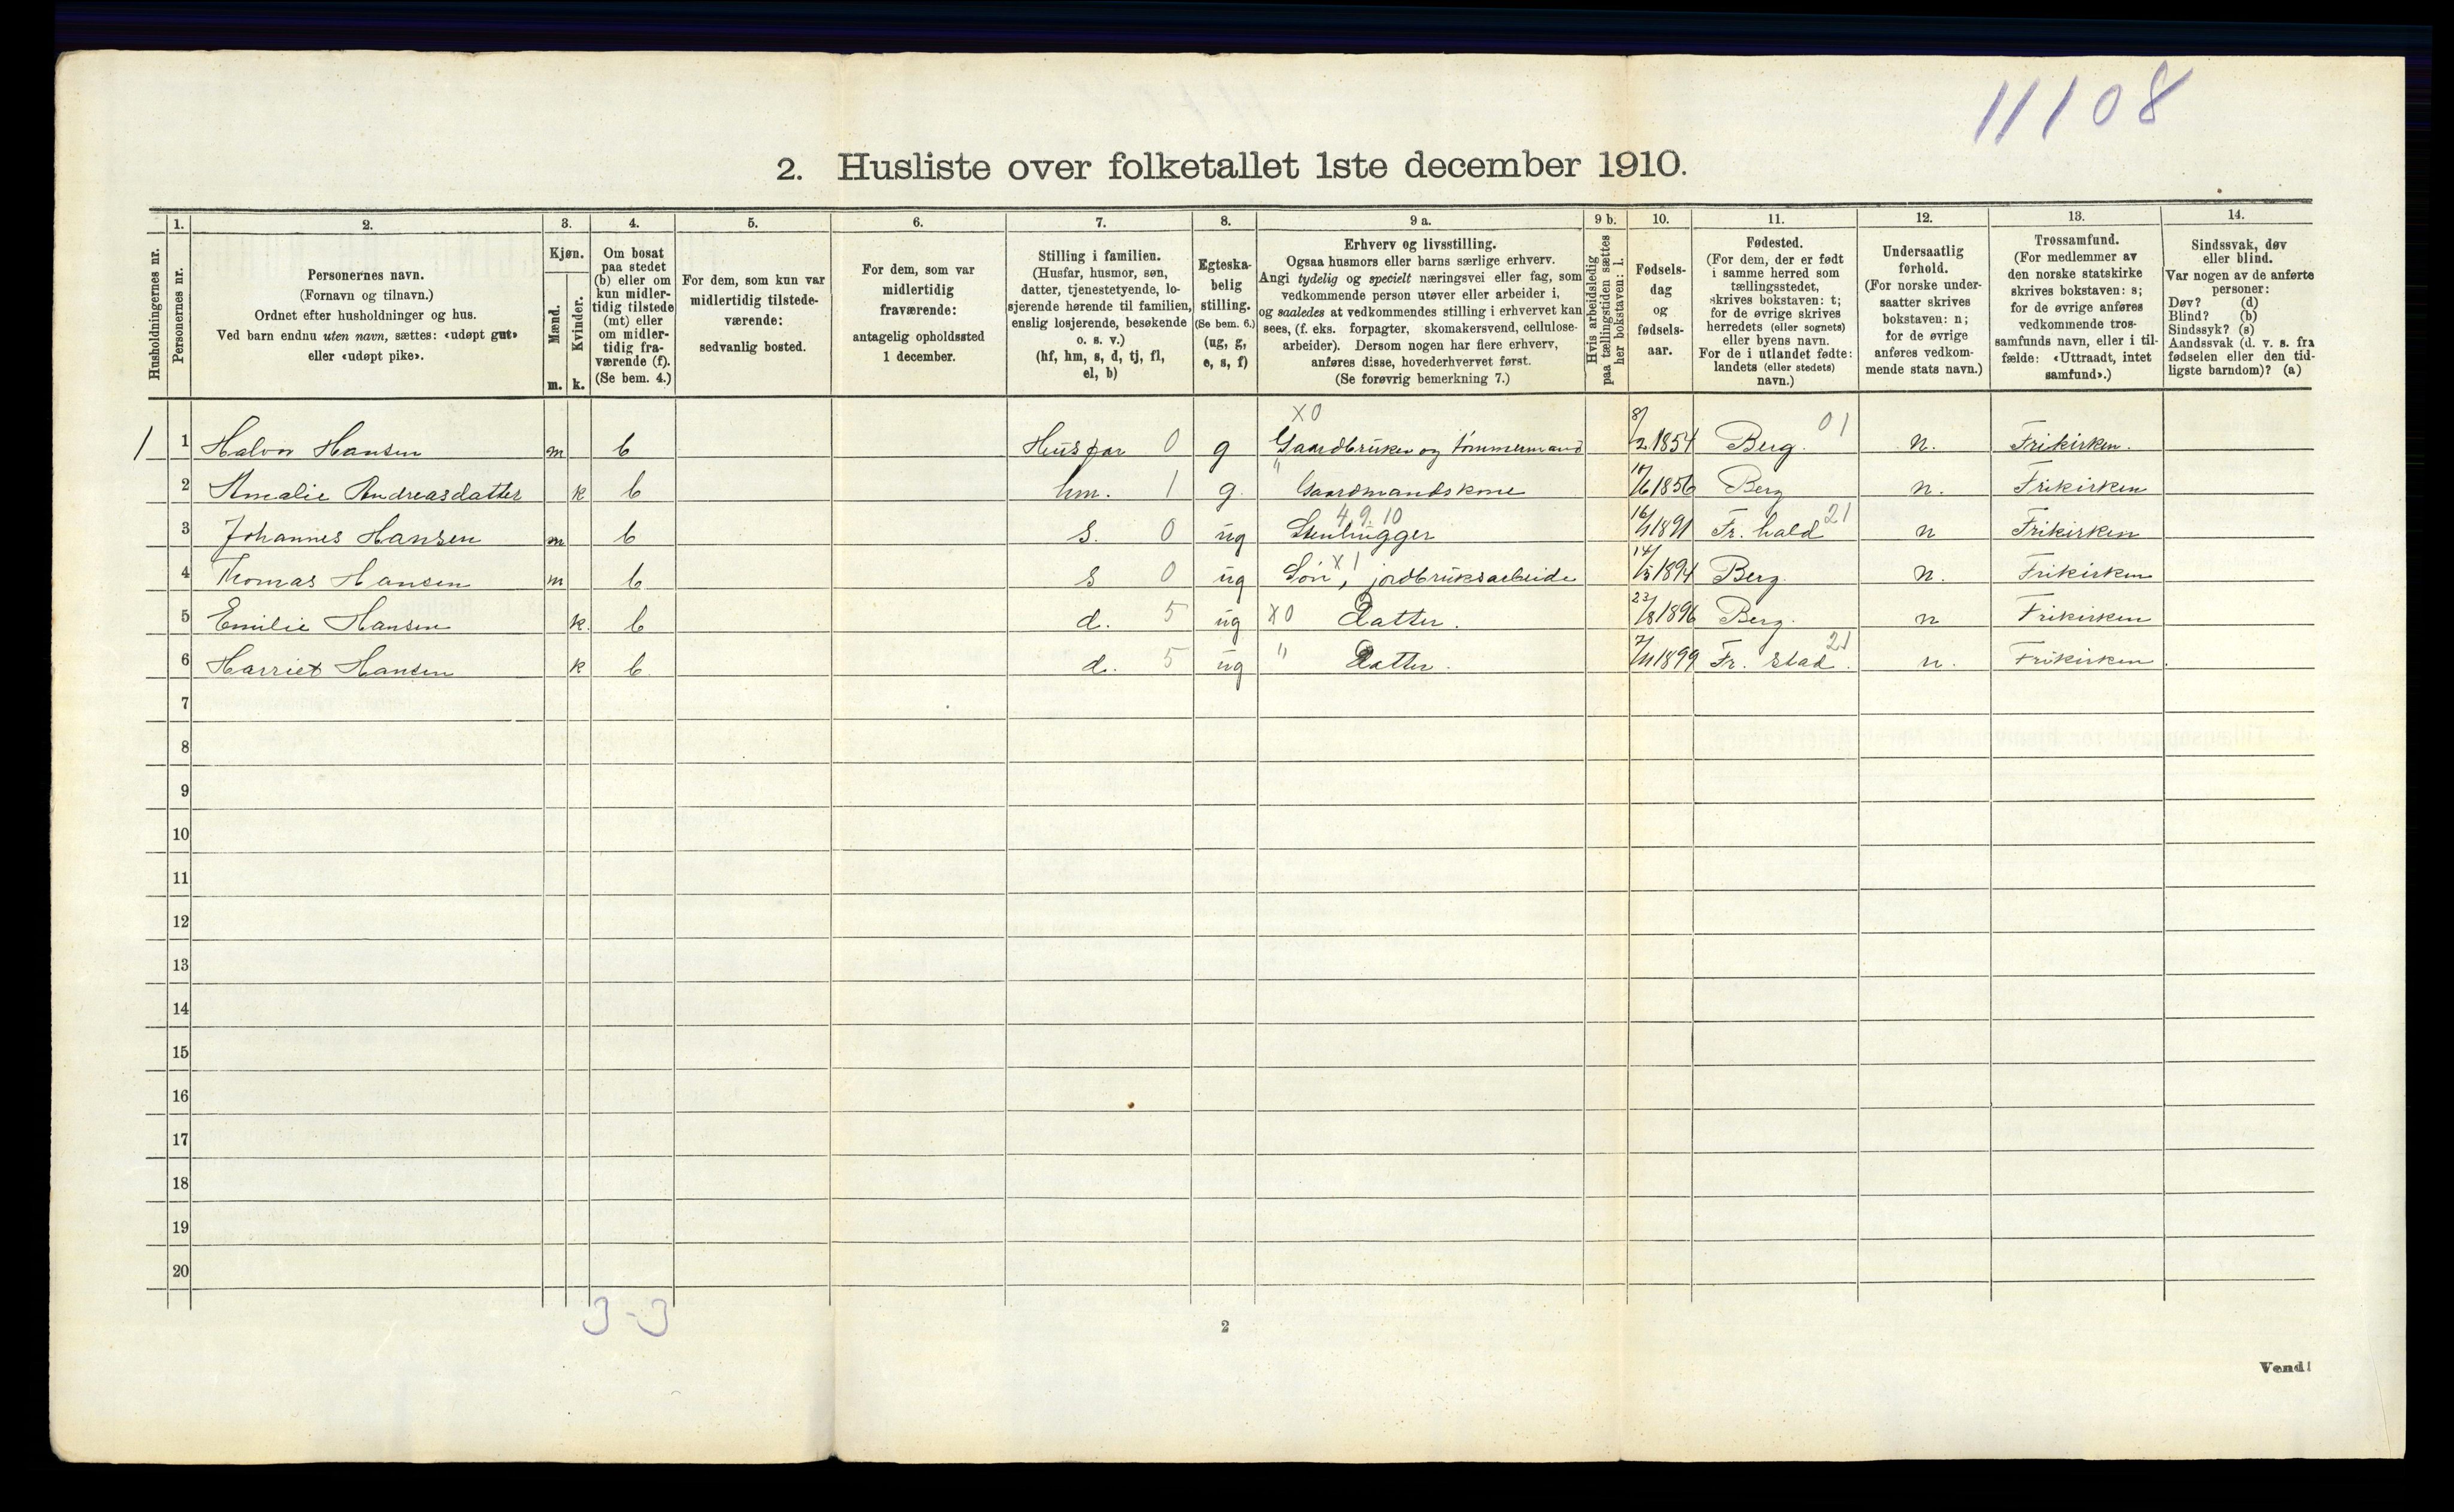 11108
2. Husliste over folketallet 1ste december 1910.
1. 2. 3. 4. 5. 6. 7. 8. 9 a. 9 b. 10. 11. 12. 13. 14.
Husholdningernes nr.
Personernes nr.
Personernes navn.
(Fornavn og tilnavn.)
Ordnet efter husholdninger og hus.
Ved barn endnu uten navn, sættes: «udøpt gut»
eller «udøpt pike».
Kjøn.
Mænd.
Kvinder.
m. k.
Om bosat
paa stedet
(b) eller om
kun midler-
tidig tilstede
(mt) eller
om midler-
tidig fra-
værende (f).
(Se bem. 4.)
For dem, som kun var
midlertidig tilstede-
værende:
sedvanlig bosted.
For dem, som var
midlertidig
fraværende:
antagelig opholdssted
1 december.
Stilling i familien.
(Husfar, husmor, søn,
datter, tjenestetyende, lo-
sjerende hørende til familien,
enslig losjerende, besøkende
o. s. v.)
(hf, hm, s, d, tj, fl,
el, b)
Egteska-
belig
stilling.
(Se bem. 6.)
(ug, g,
e, s, f)
Erhverv og livsstilling.
Ogsaa husmors eller barns særlige erhverv.
Angi tydelig og specielt næringsvei eller fag, som
vedkommende person utøver eller arbeider i,
og saaledes at vedkommendes stilling i erhvervet kan
sees, (f. eks. forpagter, skomakersvend, cellulose-
arbeider). Dersom nogen har flere erhverv,
anføres disse, hovederhvervet først.
(Se forøvrig bemerkning 7.)
Hvis arbeidsledig
paa tællingstiden sættes
her bokstaven: l.
Fødsels-
dag
og
fødsels-
aar.
Fødested.
(For dem, der er født
i samme herred som
tællingsstedet,
skrives bokstaven: t;
for de øvrige skrives
herredets (eller sognets)
eller byens navn.
For de i utlandet fødte:
landets (eller stedets)
navn.)
Undersaatlig
forhold.
(For norske under-
saatter skrives
bokstaven: n;
for de øvrige
anføres vedkom-
mende stats navn.)
Trossamfund.
(For medlemmer av
den norske statskirke
skrives bokstaven: s;
for de øvrige anføres
vedkommende tros-
samfunds navn, eller i til-
fælde: «Uttraadt, intet
samfund».)
Sindssvak, døv
eller blind.
Var nogen av de anførte
personer:
Døv? (d)
Blind? (b)
Sindssyk? (s)
Aandssvak (d. v. s. fra
fødselen eller den tid-
ligste barndom)? (a)
1 1 Halvor Hansen m b Husfar 0 g X0 Gaardbruker og tømmermand 8/2 1854 Berg. 01 n. Frikirken.
2 Amalie Andreasdatter k b hm. 1 g. " Gaardmandskone /6 1856 Berg n. Frikirken
3 Johannes Hansen m b s. 0 ug 4 9. 10 Stenhugger 16/ 1891 Fr. hald 21 n Frikirken
4 Thomas Hansen m b s 0 ug X1 Søn, jordbruksarbeide 14/ 1894 Berg. n. Frikirken
5 Emilie Hansen k. b d. 5 ug X0 Datter. 23/8 1896 Berg. n Frikirken
6 Harriet Hansen k b. d. 5 ug " Datter. 7/11 1899 Fr. stad. 21 n. Frikirken.
7
8
9
10
11
12
13
14
15
16
17
18
19
20
3-3
2
Vend!